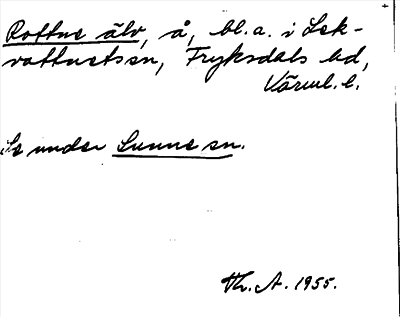 Rottne älv, å, bl.a. i Lek-
vattnets sn, Fryksdals hd,
Värml. l.
Se under Sunne sn.
Th. A. 1955.